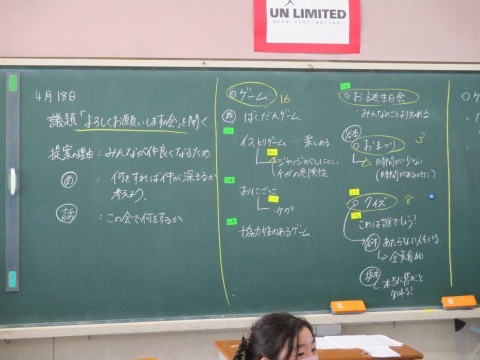 UN LIMITED
4月18日
議題「よろしくお願いします会」を開く
提案理由:みんなが仲良くなるため
め:何をすれば仲が深まるか
考えよう。
話:この会で何をするか
ゲーム 16
ばくだんゲーム
イスとりゲーム…楽しめる
ケガの危険性
おにごっこ
ケガ
協力性のあるゲーム
お誕生日会
みんなのことより知れる
おまつり 3
時間が少ない
(時間があるのに)
クイズ 8
これは誰でしょう?
あたらない人もいる
全員参加